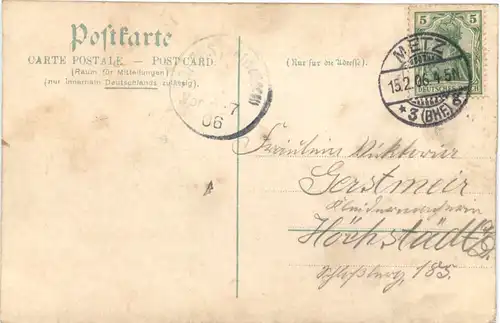 Postkarte
CARTE POSTALE — POSTCARD
(Raum für Mitteilungen)
(nur innerhalb Deutschlands zulässig).
(Nur für die Adresse).
5 5
DEUTSCHES REICH
METZ
15.2.06.4-5N
*3(BHF)
7
06
Fräulein Viktoria
Gerstmeir
Kleidermacherin
Höchstädt
Schloßberg, 185.